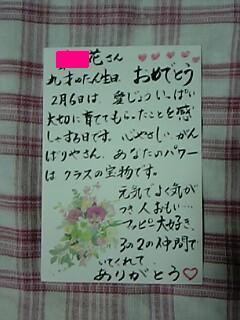 花さん
九才のたん生日、おめでとう
2月6日は、愛じょういっぱい
大切に育ててもらったことを感
しゃする日です。心やさしい、がん
ばりやさん、あなたのパワー
は クラスの宝物です。
元気でよく気が
つき人おもい…
大好き、
3の2の仲間で
いてくれて
ありがとう♡